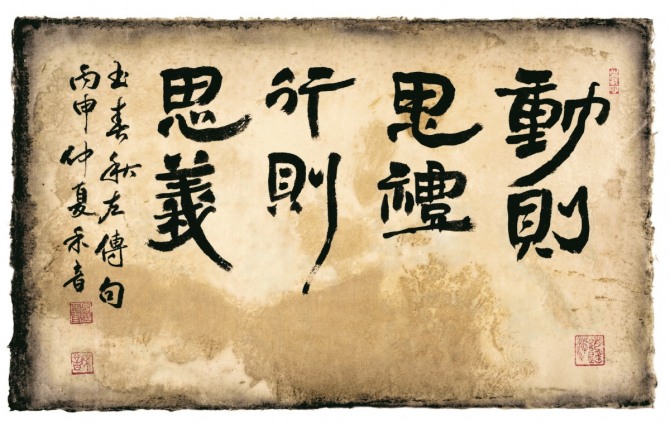 動則
思禮
行則
思義
書春秋左傳句
丙申仲夏禾音